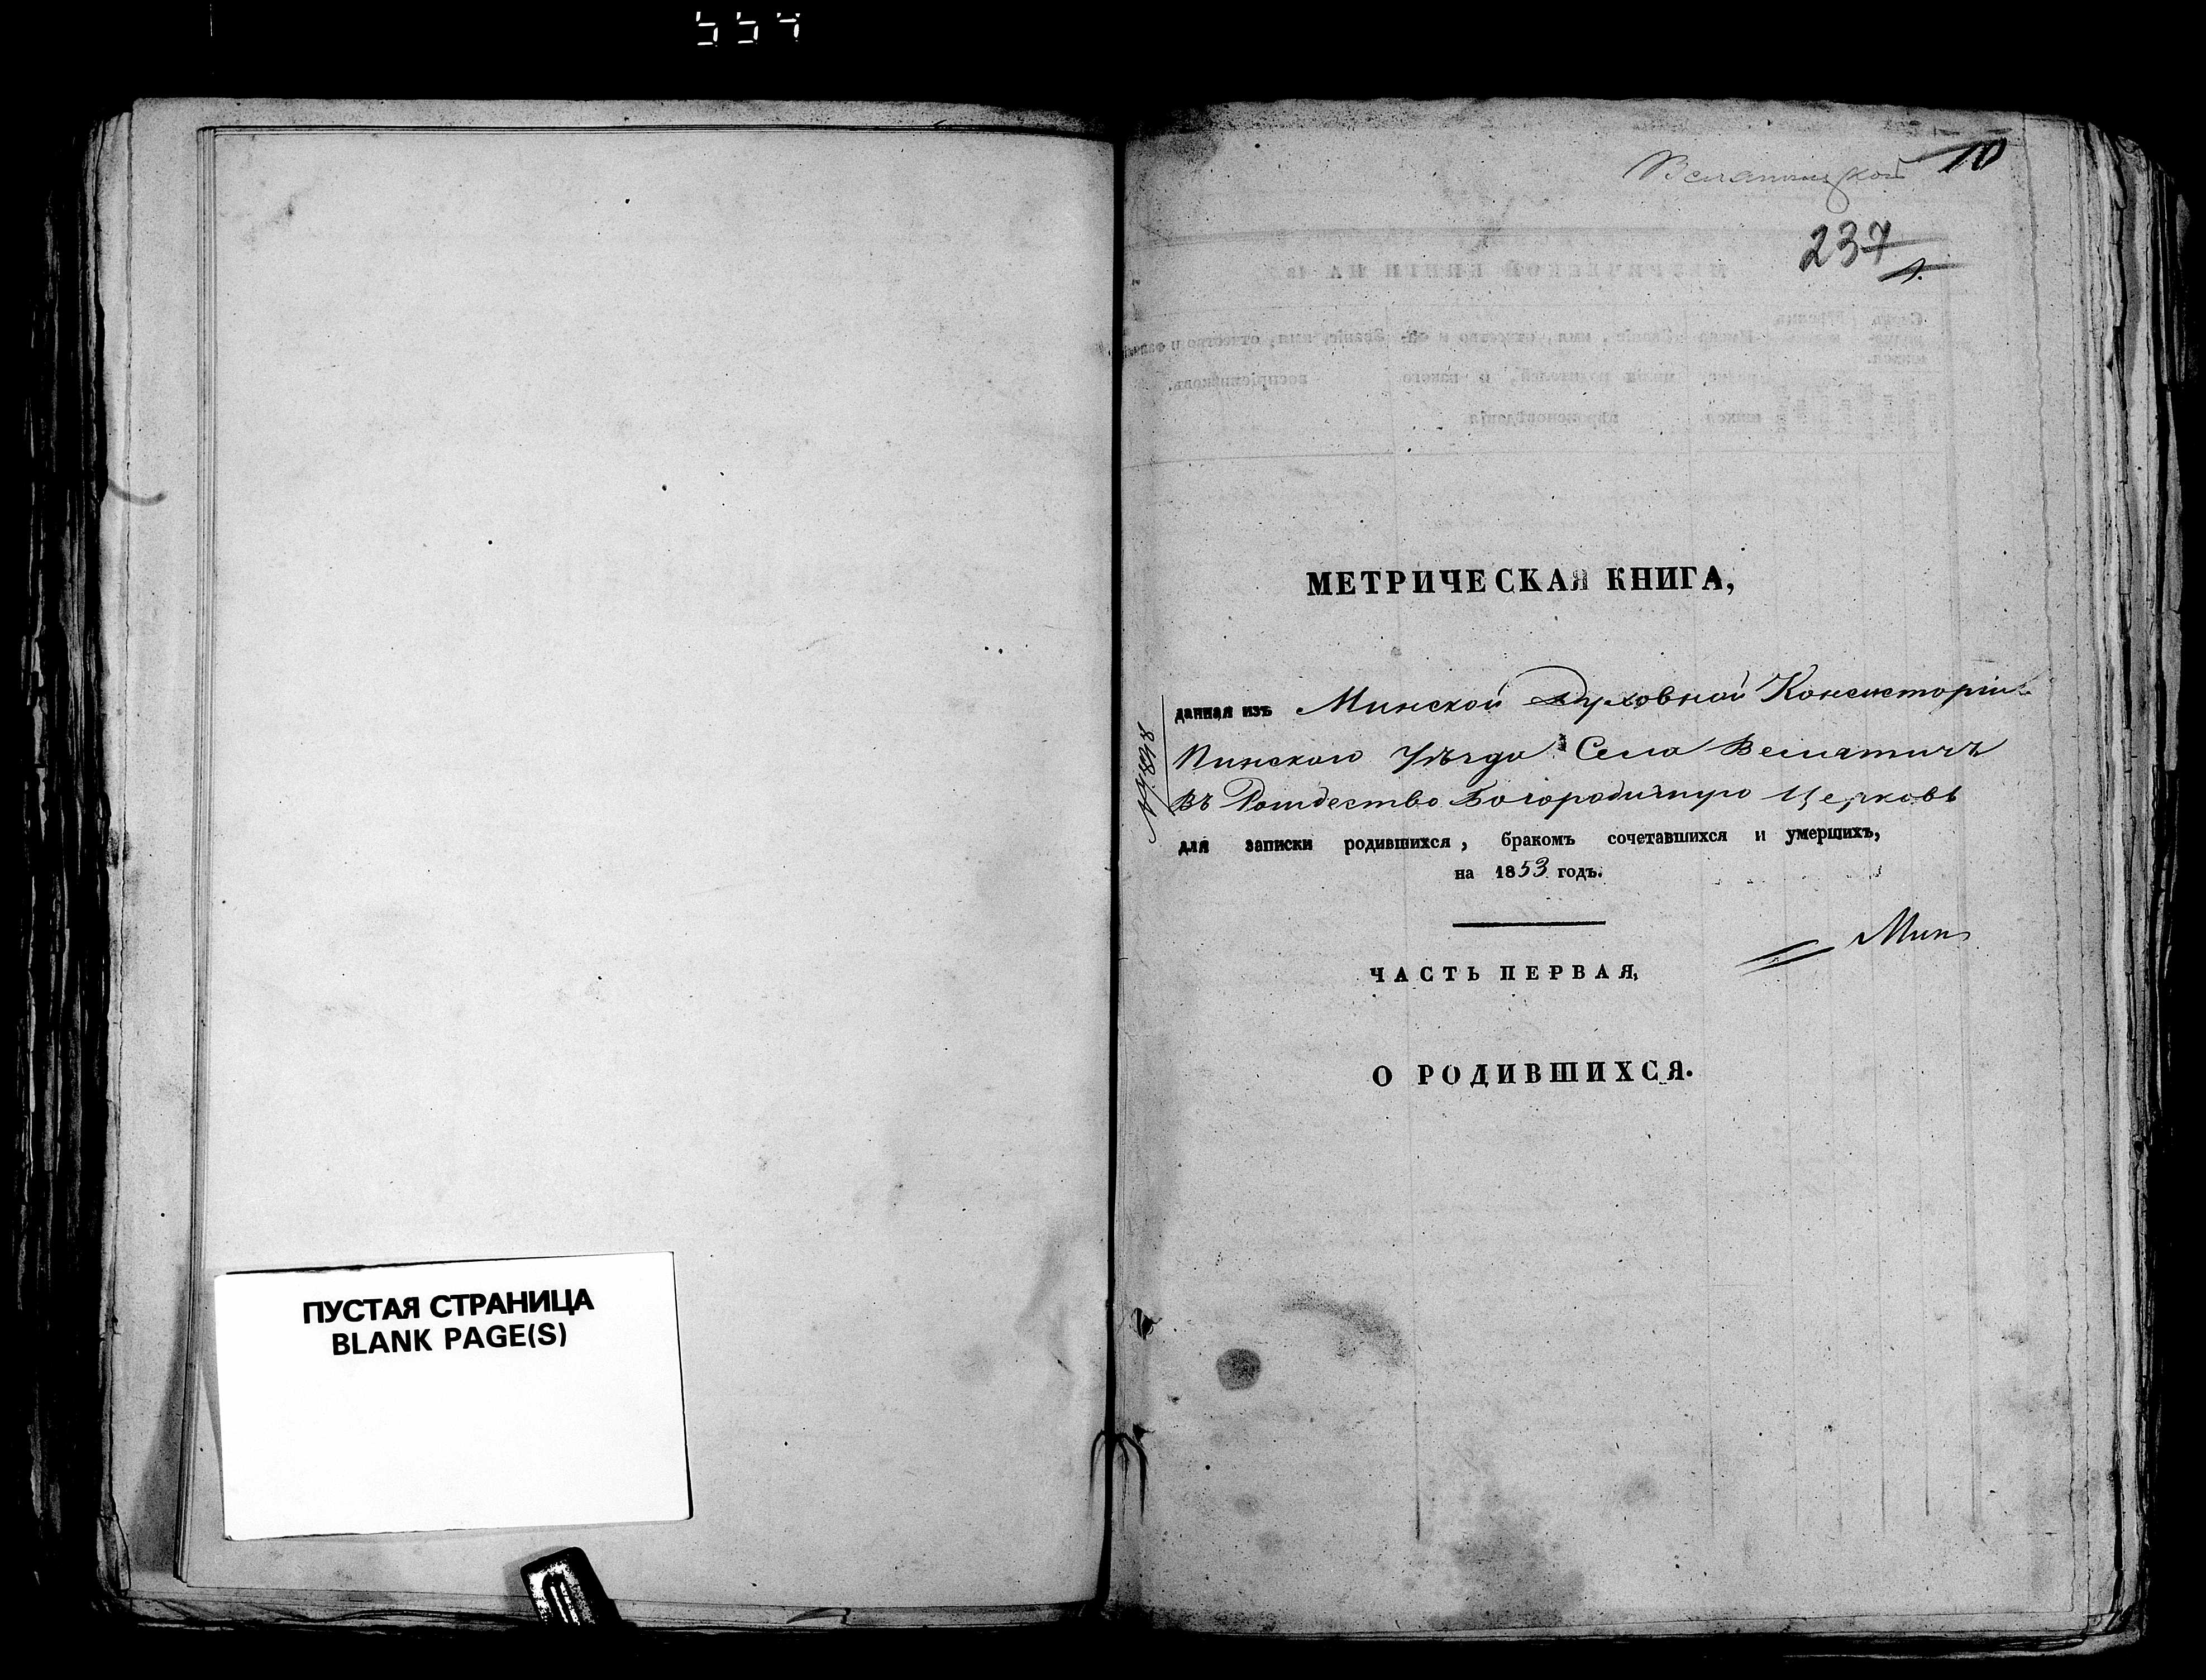 554
ПУСТАЯ СТРАНИЦА
BLANK PAGE(S)
10
Велятицкой
237
МЕТРИЧЕСКАЯ КНИГА,
данная изъ Минской Духовной Консисторіи
Пинскаго Уѣзда Села Велятичъ
въ Рождество Богородичную Церковь
для записки родившихся, бракомъ сочетавшихся и умершихъ,
на 1853 годъ.
Мин
ЧАСТЬ ПЕРВАЯ,
О РОДИВШИХСЯ.